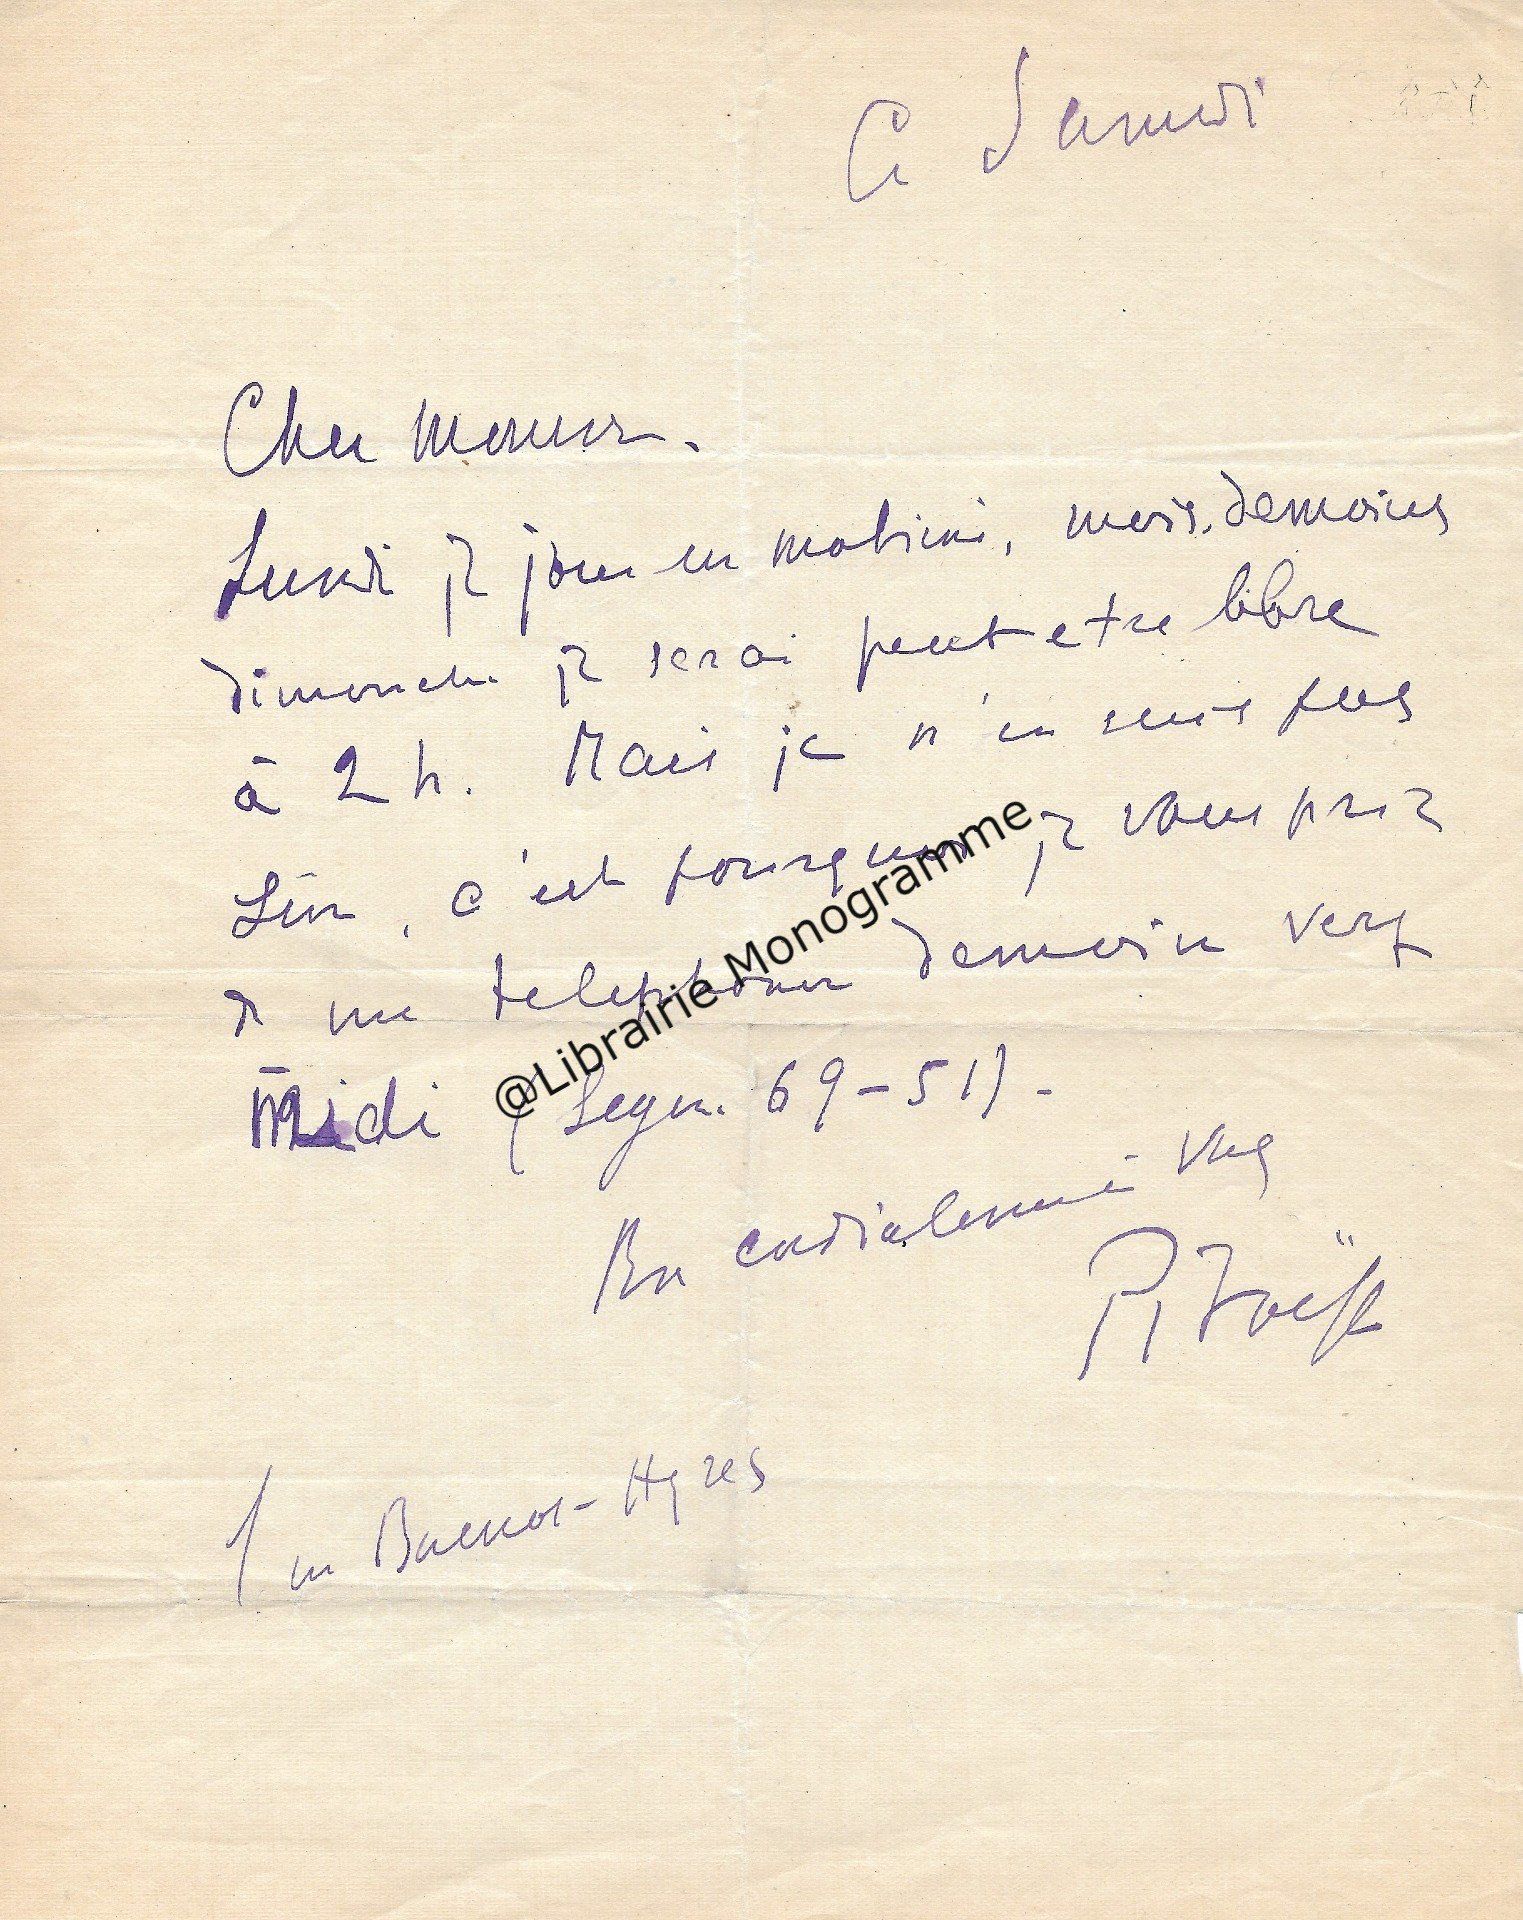 Ce Samedi
Cher Monsieur.
Lundi je joue en matinée, mais. demain
dimanche je serai peut etre libre
à 2 h. Mais je n'en suis pas
sûr, c'est pourquoi je vous prie
de me telephoner demain vers
Midi (Segur. 69-51) -
Bien cordialement vous
1 rue Buenos-Ayres
@Librairie Monogramme